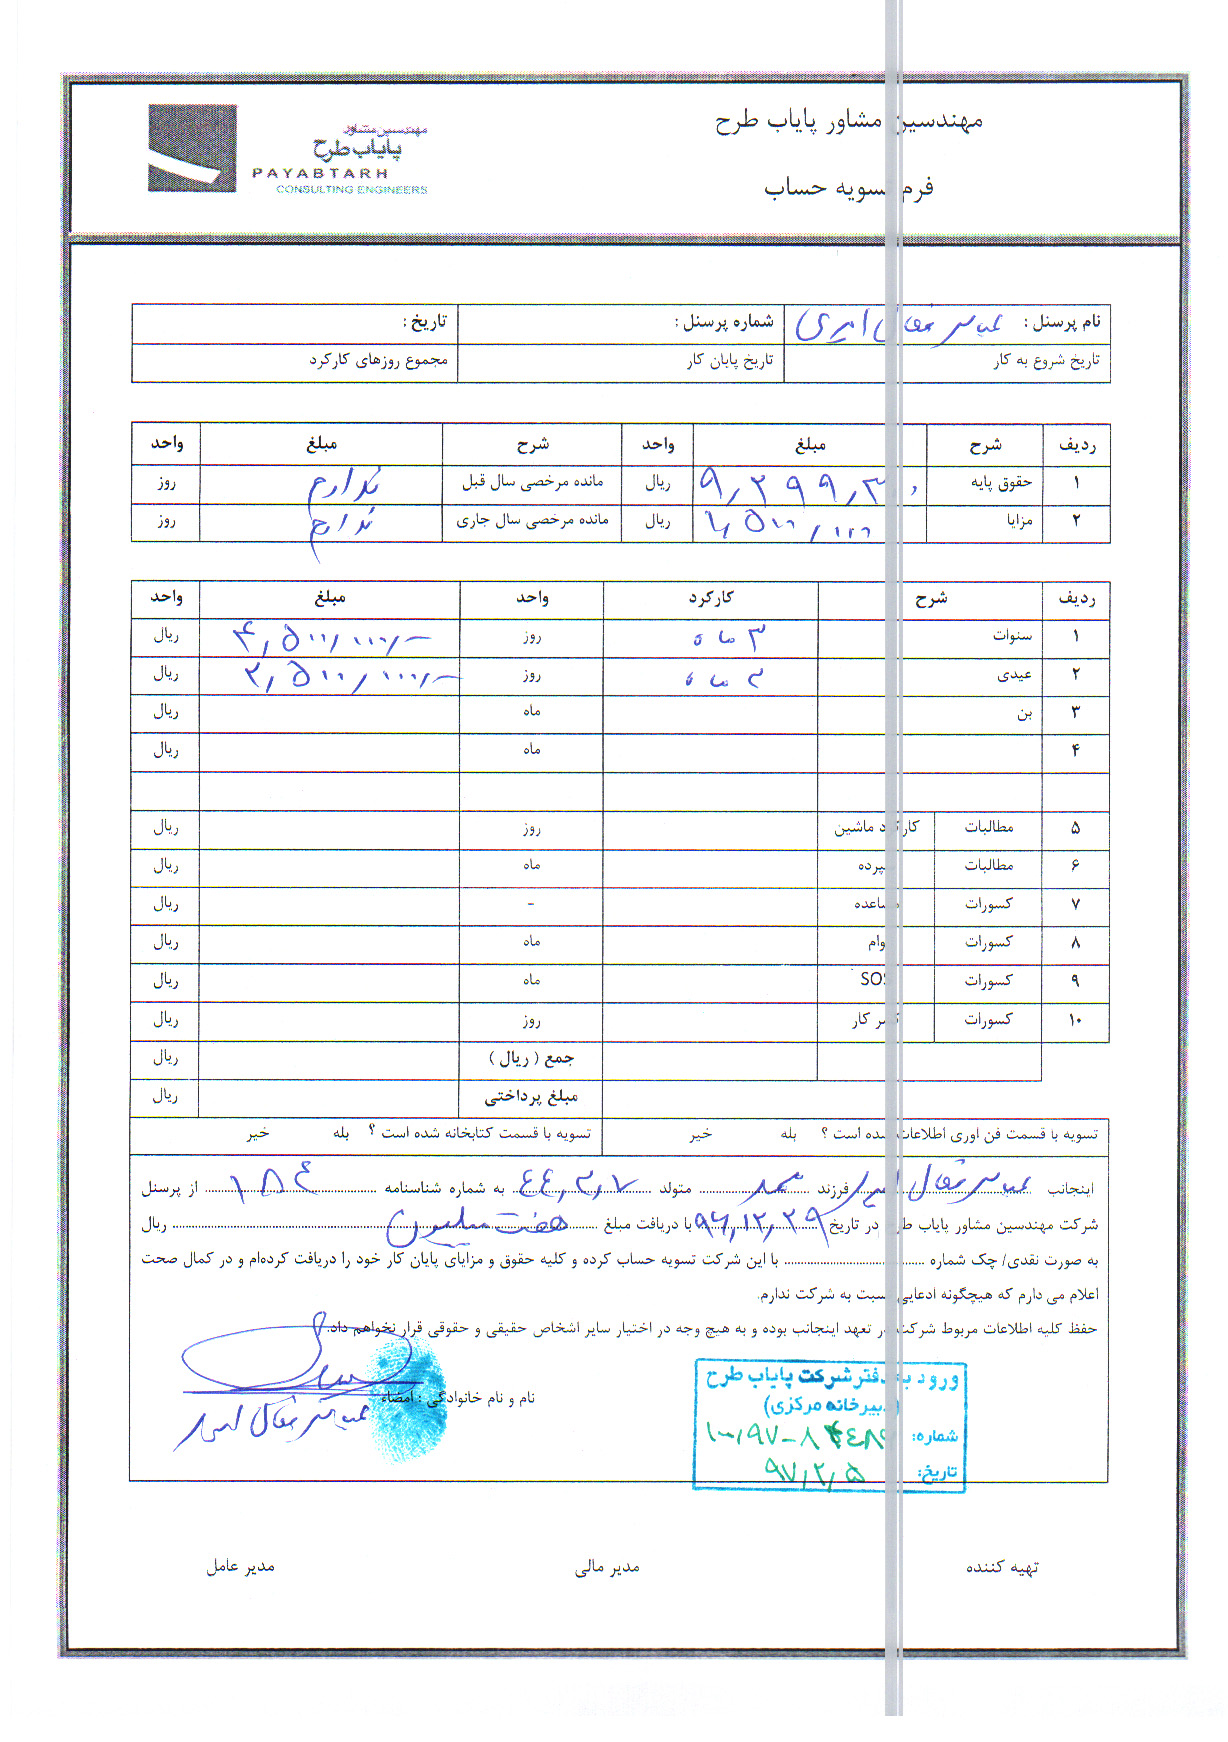 مهندسین مشاور پایاب طرح
فرم تسویه حساب
مهندسین مشاور
پایاب طرح
PAYABTARH
CONSULTING ENGINEERS
نام پرسنل : عباس شماره پرسنل : تاریخ :
تاریخ شروع به کار تاریخ پایان کار مجموع روزهای کارکرد
ردیف شرح مبلغ واحد شرح مبلغ واحد
۱ حقوق پایه ریال مانده مرخصی سال قبل ندارم روز
۲ مزایا ریال مانده مرخصی سال جاری ندارم روز
ردیف شرح کارکرد واحد مبلغ واحد
۱ سنوات ۳ ماه روز ۴,۵۰۰/۰۰۰/- ریال
۲ عیدی ۳ ماه روز ۲,۵۰۰/۰۰۰/- ریال
۳ بن ماه ریال
۴ ماه ریال
۵ مطالبات کارکرد ماشین روز ریال
۶ مطالبات سپرده ماه ریال
۷ کسورات مساعده - ریال
۸ کسورات وام ماه ریال
۹ کسورات SOS ماه ریال
۱۰ کسورات کسر کار روز ریال
جمع ( ریال ) ریال
مبلغ پرداختی ریال
تسویه با قسمت فن اوری اطلاعات شده است ؟ بله خیر تسویه با قسمت کتابخانه شده است ؟ بله خیر
اینجانب عباس فرزند محمد متولد ۴۴,۳,۷ به شماره شناسنامه ۱۵۴ از پرسنل
شرکت مهندسین مشاور پایاب طرح در تاریخ ۹۶,۱۲,۲۹ با دریافت مبلغ هفت میلیون ریال
به صورت نقدی/ چک شماره با این شرکت تسویه حساب کرده و کلیه حقوق و مزایای پایان کار خود را دریافت کرده‌ام و در کمال صحت
اعلام می دارم که هیچگونه ادعایی نسبت به شرکت ندارم.
حفظ کلیه اطلاعات مربوط شرکت در تعهد اینجانب بوده و به هیچ وجه در اختیار سایر اشخاص حقیقی و حقوقی قرار نخواهم داد.
نام و نام خانوادگی : امضاء
عباس
ورود به دفتر شرکت پایاب طرح
(دبیرخانه مرکزی)
شماره:
تاریخ: ۹۷,۲,۵
تهیه کننده مدیر مالی مدیر عامل